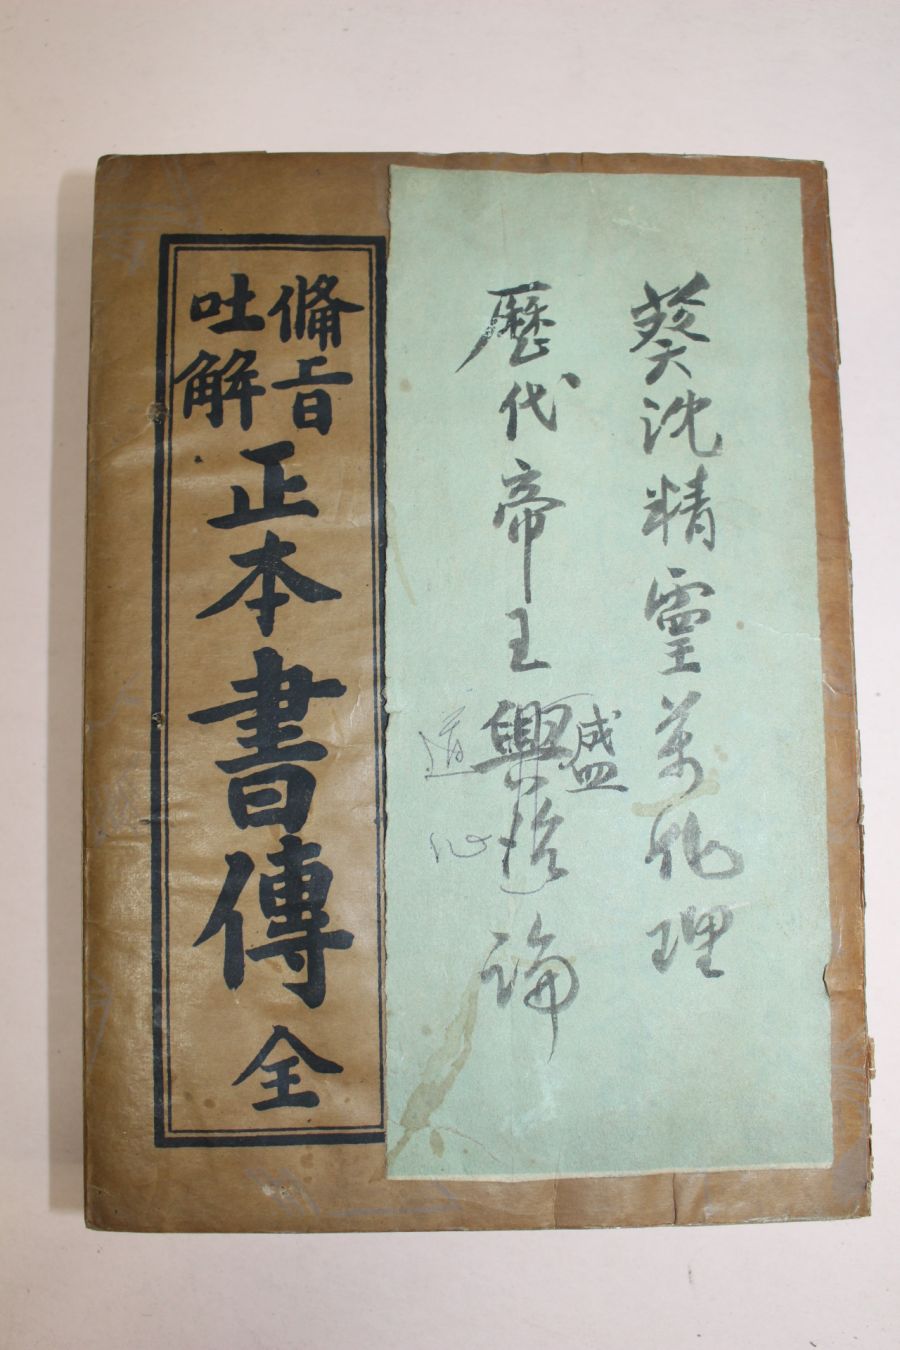 葵沈精靈萬化理
歷代帝王興治論
盛
道
心
備旨
吐解
正本書傳全